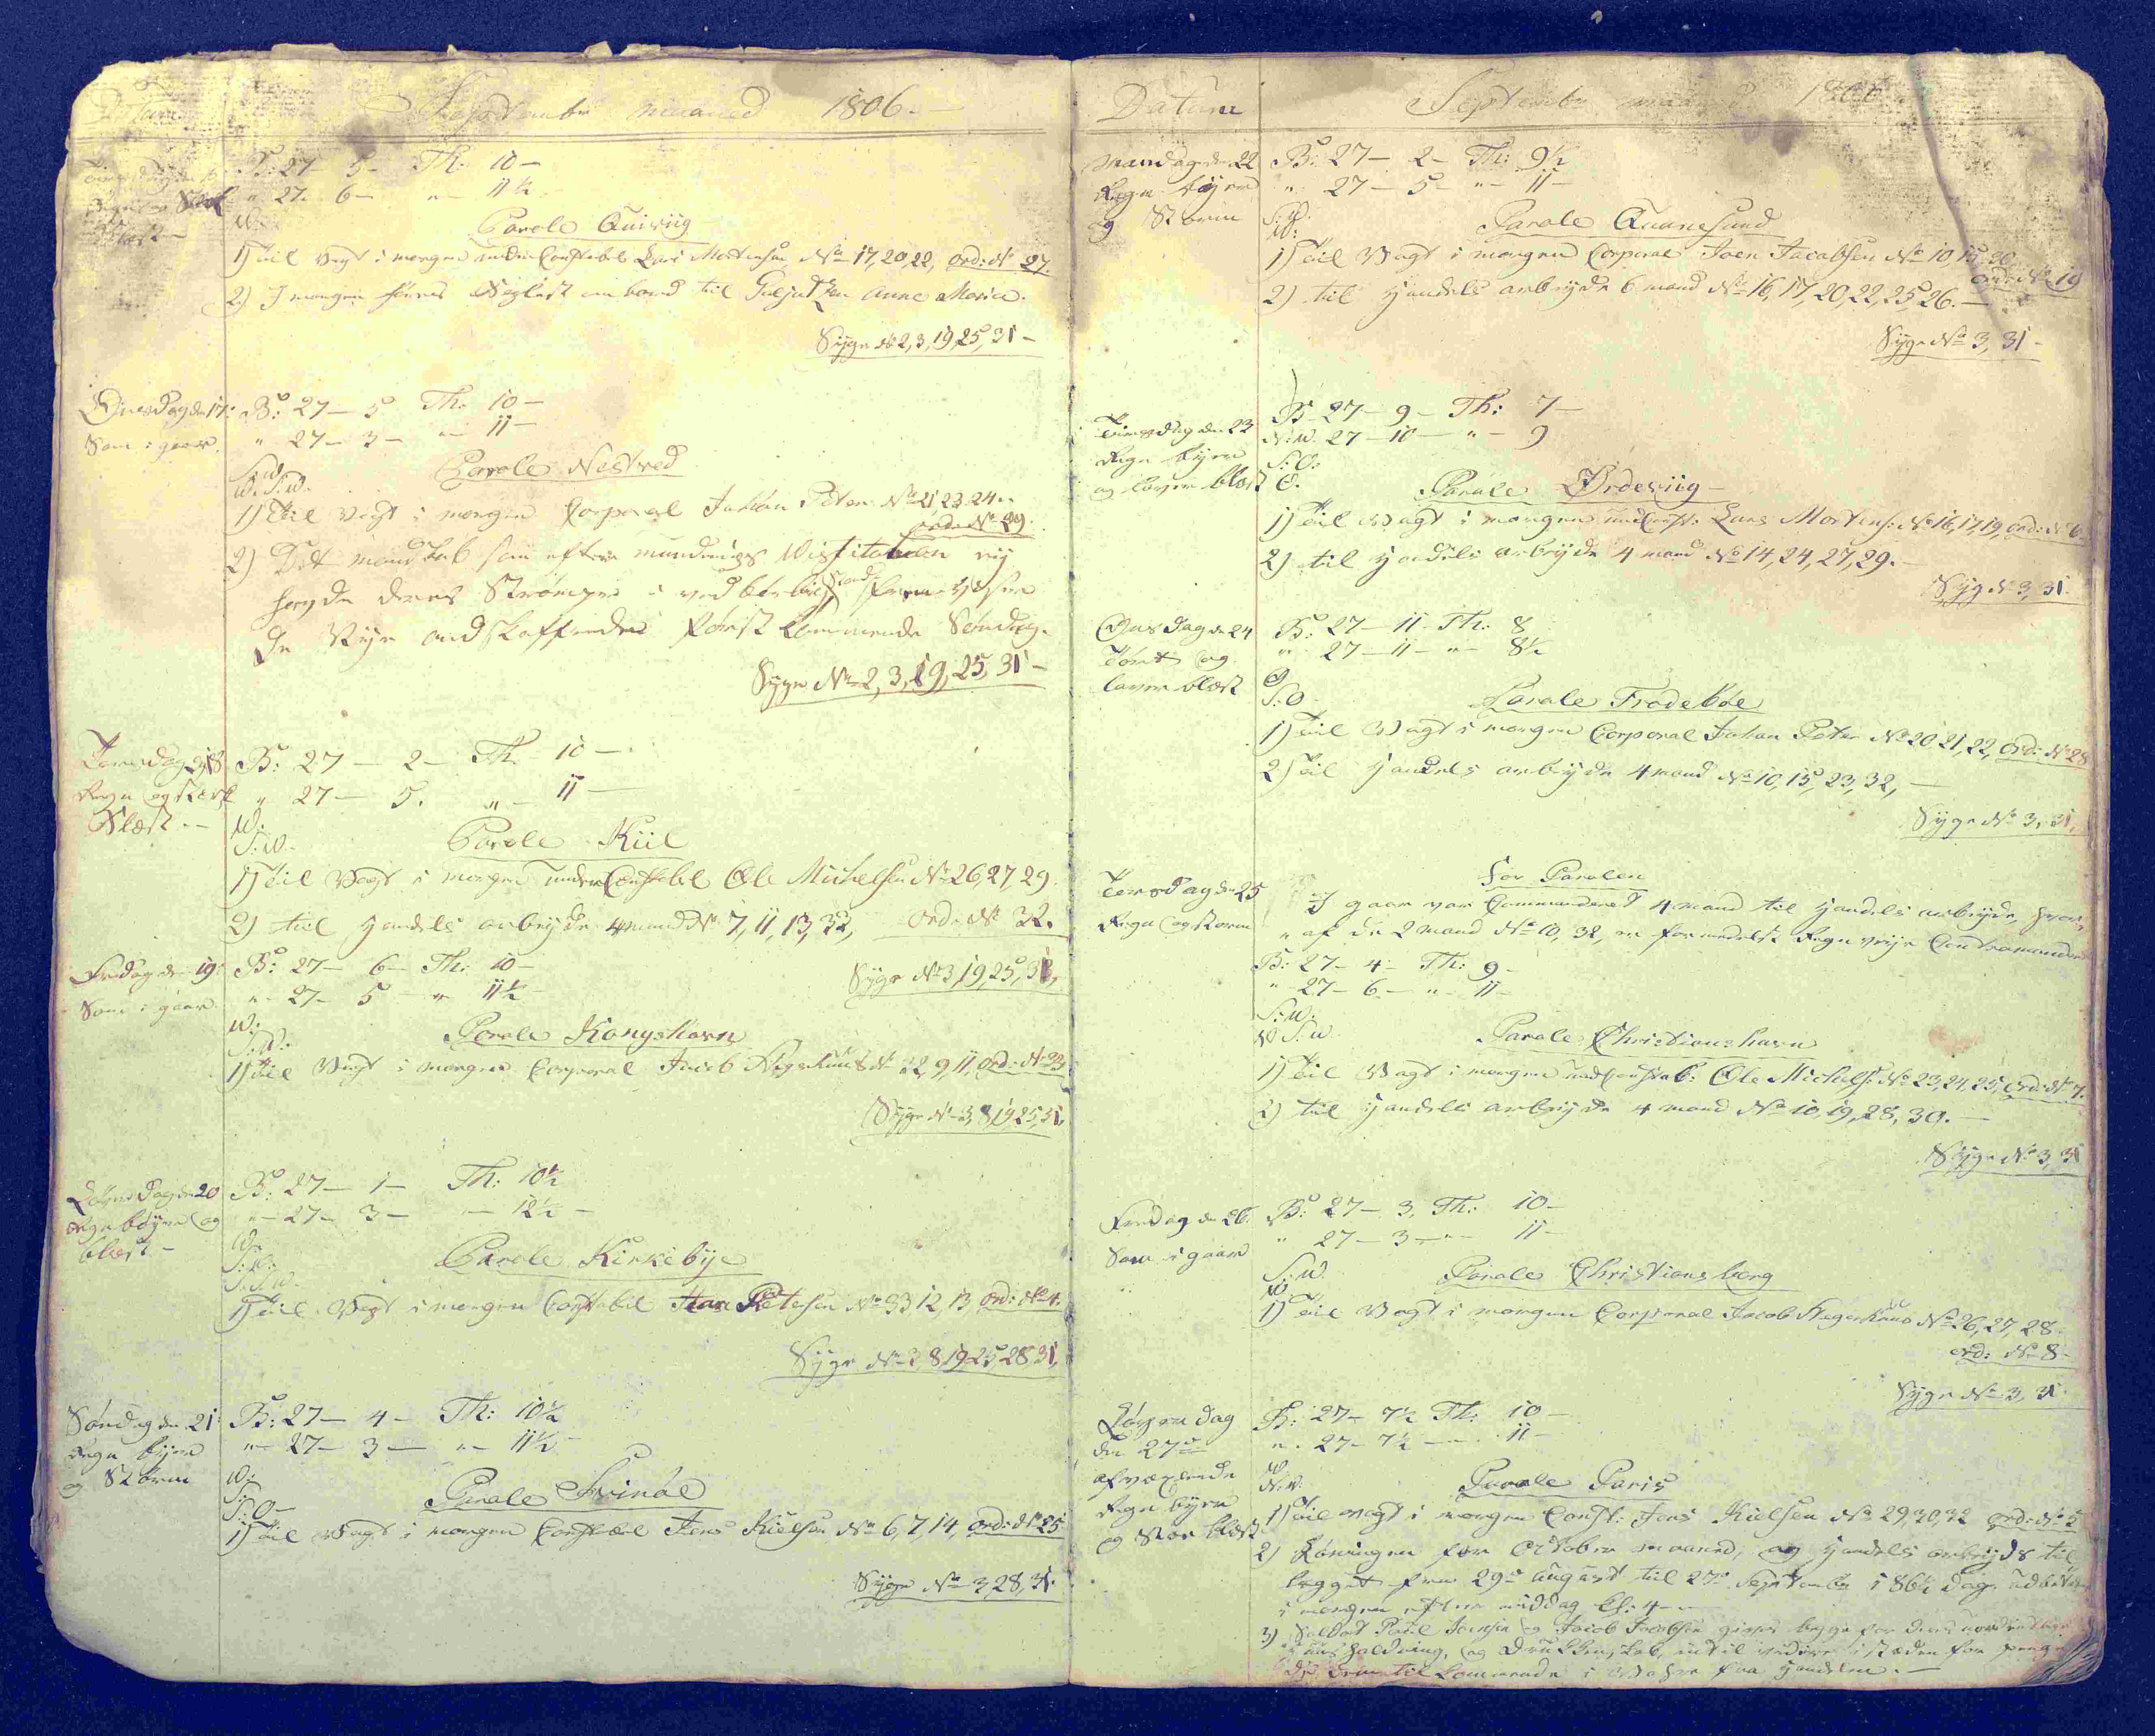 Datum
September maaned 1806.
B: 27 - 5 - Th: 10 -
" 27 - 6 - " - 11½
W:
Parole Quiviig
1) Til Vagt i morgen under Constabel Lars Mortensen No 17, 20, 22, ord: No 27.
2) I morgen føres Seglest om bord til Galjudsen Anne Maria.
Syge No 2, 3, 19, 25, 31 -
Onsdag den 17:
Som i gaar.
B: 27 - 5 Th: 10 -
" 27 - 3 - " - 11 -
S:W.
W.S:W.
Parole Nestved
1) Til Vagt i morgen Corporal Johan Peter No 21, 23, 24.
ord: No 29.
2) Det mandskab som efter mundrings Visitation ey
havde deres Strømper i vedbørlig Stand
de Nye andskaffendes først kommende Søndag.
Syge No 2, 3, 19, 25, 31 -
Torsdag d 18
Regn og stærk
Blæst. -
B: 27 - 2 - Th. 10 -
" 27 - 5. " - 11 -
W:
S:W.
Parole Kiil
1) Til Vagt i morgen under Constabel Ole Michelsen No 26, 27, 29.
2) til Handels arbeyde 4 mand No 7, 11, 13, 32, ord: No 32.
Syge No 3, 19, 25, 31,
Fredag den 19:
Som i gaar.
B: 27 - 6 - Th: 10 -
" - 27 - 5 - " 11½ -
W:
S:W.
Parole Kongshavn
1) Til Vagt i morgen Corporal Jacob No 22, 9, 11, ord: No 23
Syge No 3, 8, 19, 25, 31.
Løverdag den 20
Regn bÿger og
blæst -
B: 27 - 1 - Th: 10½
" - 27 - 3 - " - 12½ -
W:
Parole Kirkebÿe
1) Til Vagt i morgen Constabel Petersen No 33 12, 13 ord: No 4.
Syge No 3 8 19 25 28 31,
Søndag den 21:
Regn bÿer
og Storm
B: 27 - 4 - Th: 10½
" - 27 - 3 - " - 11½ -
W:
S:
S:O -
Parole Svinøe
1) Til Vagt i morgen Constabel Jens Kielsen No 6, 7, 14, ord: No 25
Syge No 3, 28, 31.
Datum
September maaned 1806
Mandag den 22
Regn bÿer
og Storm
B: 27 - 2 - Th: 9½
" - 27 - 5 - " - 11 -
S:W.
W:
Parole Quannesund
1) Til Vagt i morgen Corporal Joen Jacobsen No 10 15, 20
ord: No 19
2) til Handels arbeyde 6 mand No 16, 17, 20, 22, 25, 26. -
Syge No 3, 31 -
Tirsdag den 23
Regn bÿer
og laver blæst
B 27 - 9 - Th: 7 -
N:W. 27 - 10 - " - 9
S:O:
O.
Parole Ørdeviig -
1) Til Vagt i morgen undConst: Lars Mortens: No 16, 17, 19, ord: No 6
2) til Handels arbeyde 4 mand No 14, 24, 27, 29. -
Syg No 3, 31.
Onsdag den 24
Tørt og
laver blæst
B: 27 - 11 - Th: 8
" 27 - 11 - " - 8½
O
S:O
Parole Frodebøe
1) Til Vagt i morgen Corporal Johan Peter No 20 21, 22, ord: No 28
2) Til Handels arbeyde 4 mand No 10, 15, 23, 32, -
Syge No 3, 31,
Torsdag den 25
Regn og storm
For Parolen
I gaar var Commanderet 4 mand til Handels arbeyde, hvor,
" af de 2 mand No 10, 32, er formedelst Regn veyr Contramanderet
B: 27 - 4 - Th: 9 -
" - 27 - 6 - " - 11 -
S:W.
W S:W
Parole Christianshavn
1) Til Vagt i morgen undConstab: Ole Michels: No 23, 24, 25, ord: No 7.
2) til Handels arbeyde 4 mand No 10, 19, 28, 30. -
Syge No 3, 31
Fredag den 26.
Som i gaar
B: 27 - 3. Th: 10 -
" 27 - 3 - " - 11 -
S:W
W
Parole Christiansberg
1) Til Vagt i morgen Corporal Jacob No 26, 27, 28 -
ord: No 8 -
Syge No 3, 31.
Løverdag
den 27de
afvæxlende
Regn bÿer
og Stor blæst
B: 27 - 7½ Th: 10 -
" - 27 - 7½ - " - 11 -
W
N:W.
Parole Paris
1) Til Vagt i morgen Const: Jens Kielsen No 29, 30, 32 ord: No 5
2) Løningen for October maaned, og Handels arbeyds til,
legget fra 29de August til 27de September
i morgen efter middag Kl: 4 -
3) Soldat Poul Joensen og Jacob Jacobsen gives begge for deres uordentlige
huusholdning, og Drukkenskab, indtil videre i stæden for penge